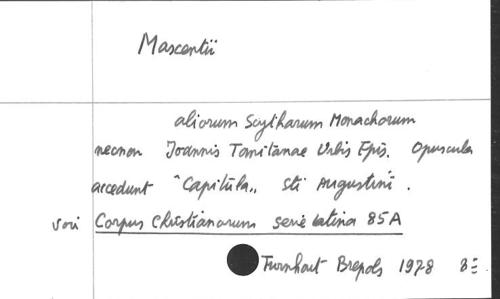 Maxentii
aliorum Scytharum Monachorum
necnon Joannis Tomitanae Urbis Epis. Opuscula
accedunt "Capitula„ Sti Augustini.
voir Corpus Christianorum serie latina 85A
Turnhout Brepols 1978 8º